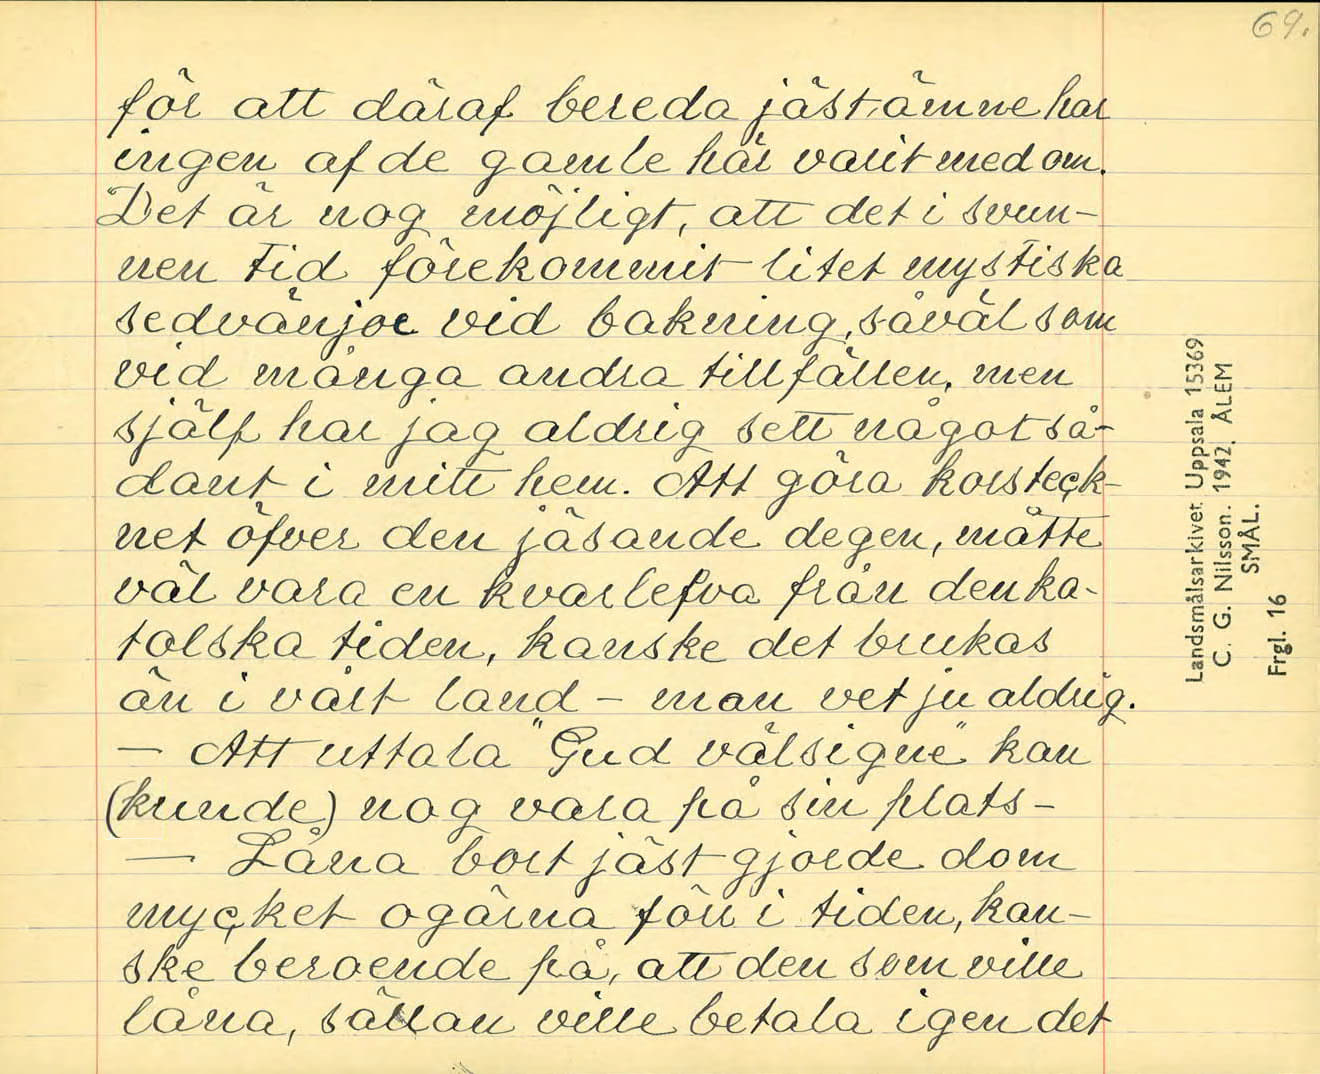 69.
för att däraf bereda jästämne har
ingen af de gamle här varit med om.
Det är nog möjligt, att det i svun-
nen tid förekommit litet mystiska
sedvänjor vid bakning, såväl som
vid många andra tillfällen, men
själf har jag aldrig sett något så-
dant i mitt hem. Att göra korsteck-
net öfver den jäsande degen, måtte
väl vara en kvarlefva från den ka-
tolska tiden, kanske det brukas
än i vårt land - man vet ju aldrig.
- Att uttala "Gud välsigne" kan
(kunde) nog vara på sin plats -
- Låna bort jäst gjorde dom
mycket ogärna förr i tiden, kan-
ske beroende på, att den som ville
låna, sällan ville betala igen det
Landsmålsarkivet Uppsala 15369
C. G. Nilsson. 1942. ÅLEM
SMÅL.
Frgl. 16